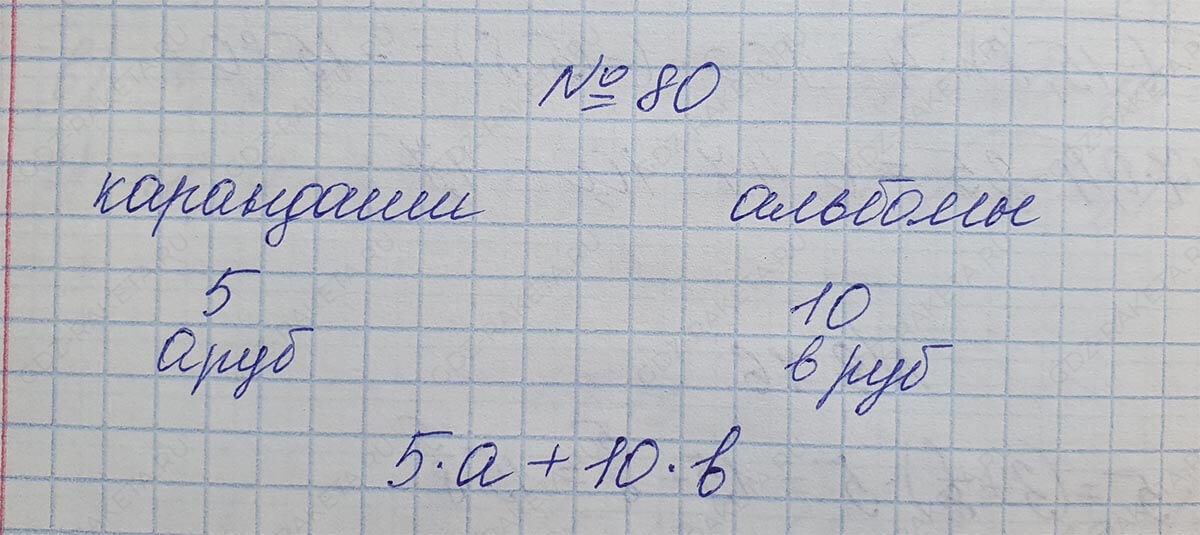 № 80
карандаши альбомы
5 10
а руб в руб
5·а + 10·в